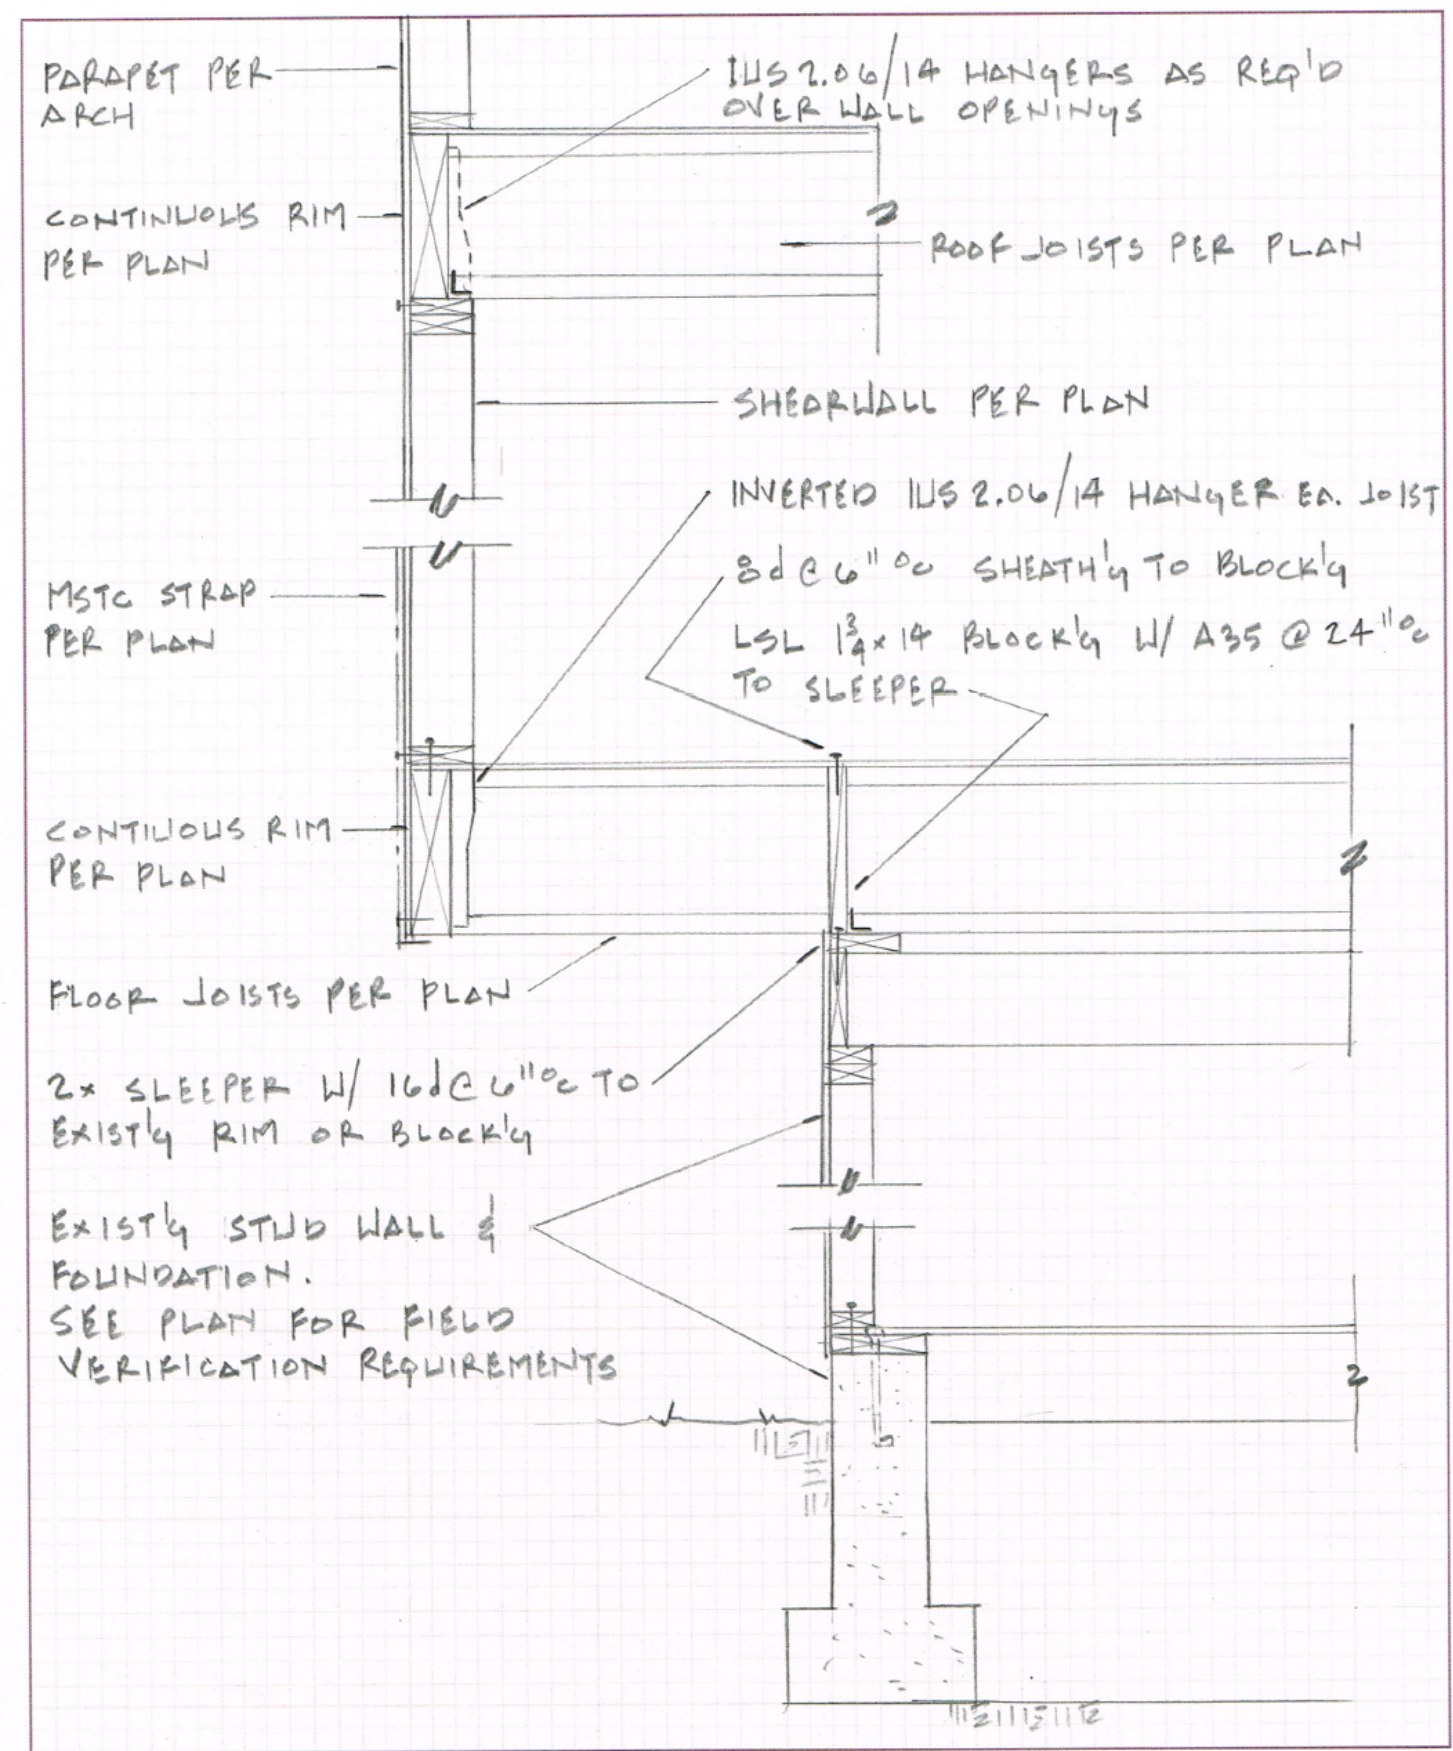 PARAPET PER
ARCH
IUS 2.06/14 HANGERS AS REQ'D
OVER WALL OPENINGS
CONTINUOUS RIM
PER PLAN
ROOF JOISTS PER PLAN
SHEARWALL PER PLAN
INVERTED IUS 2.06/14 HANGER EA. JOIST
8d @ 6" oc SHEATH'G TO BLOCK'G
LSL 1 3/4 x 14 BLOCK'G W/ A35 @ 24" oc
TO SLEEPER
MSTC STRAP
PER PLAN
CONTIUOUS RIM
PER PLAN
FLOOR JOISTS PER PLAN
2x SLEEPER W/ 16d @ 6" oc TO
EXIST'G RIM OR BLOCK'G
EXIST'G STUD WALL &
FOUNDATION.
SEE PLAN FOR FIELD
VERIFICATION REQUIREMENTS